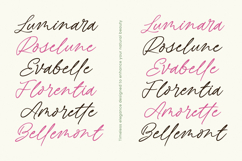 Luminara
Roselune
Evabelle
Florentia
Amorette
Bellemont
Timeless elegance designed to enhance your natural beauty
Luminara
Roselune
Evabelle
Florentia
Amorette
Bellemont